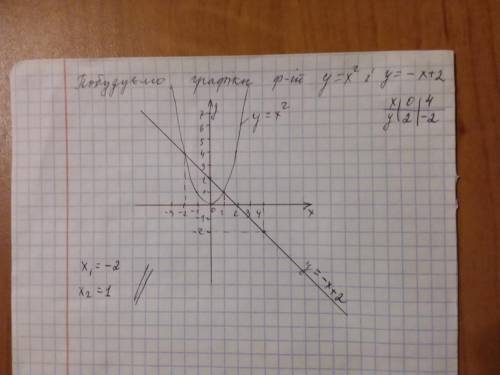 Побудуємо графіки ф-ій y=x² і y=-x+2
x | 0 | 4
y | 2 | -2
y
7
6
5
4
3
2
1
y=x²
-3 -2 -1 0 1 2 3 4 x
-1
-2
y=-x+2
x₁=-2
x₂=1